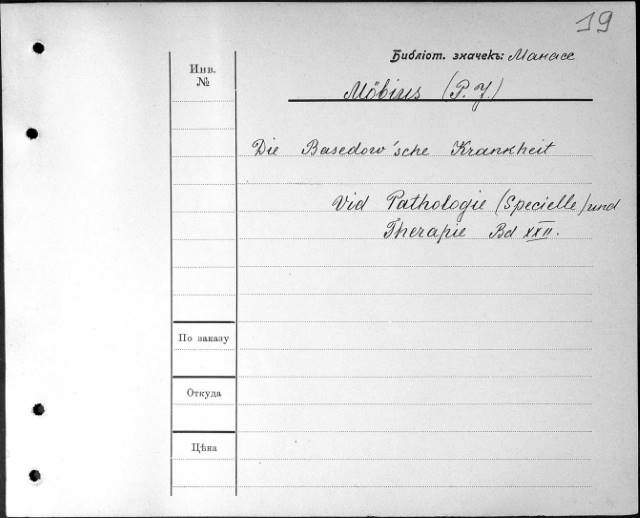 19
Библіот. значекъ: Манасе
Инв.
№
Möbius (P. J.)
Die Basedow'sche Krankheit
Vid Pathologie (Specielle) und
Therapie Bd XXII.
По заказу
Откуда
Цѣна